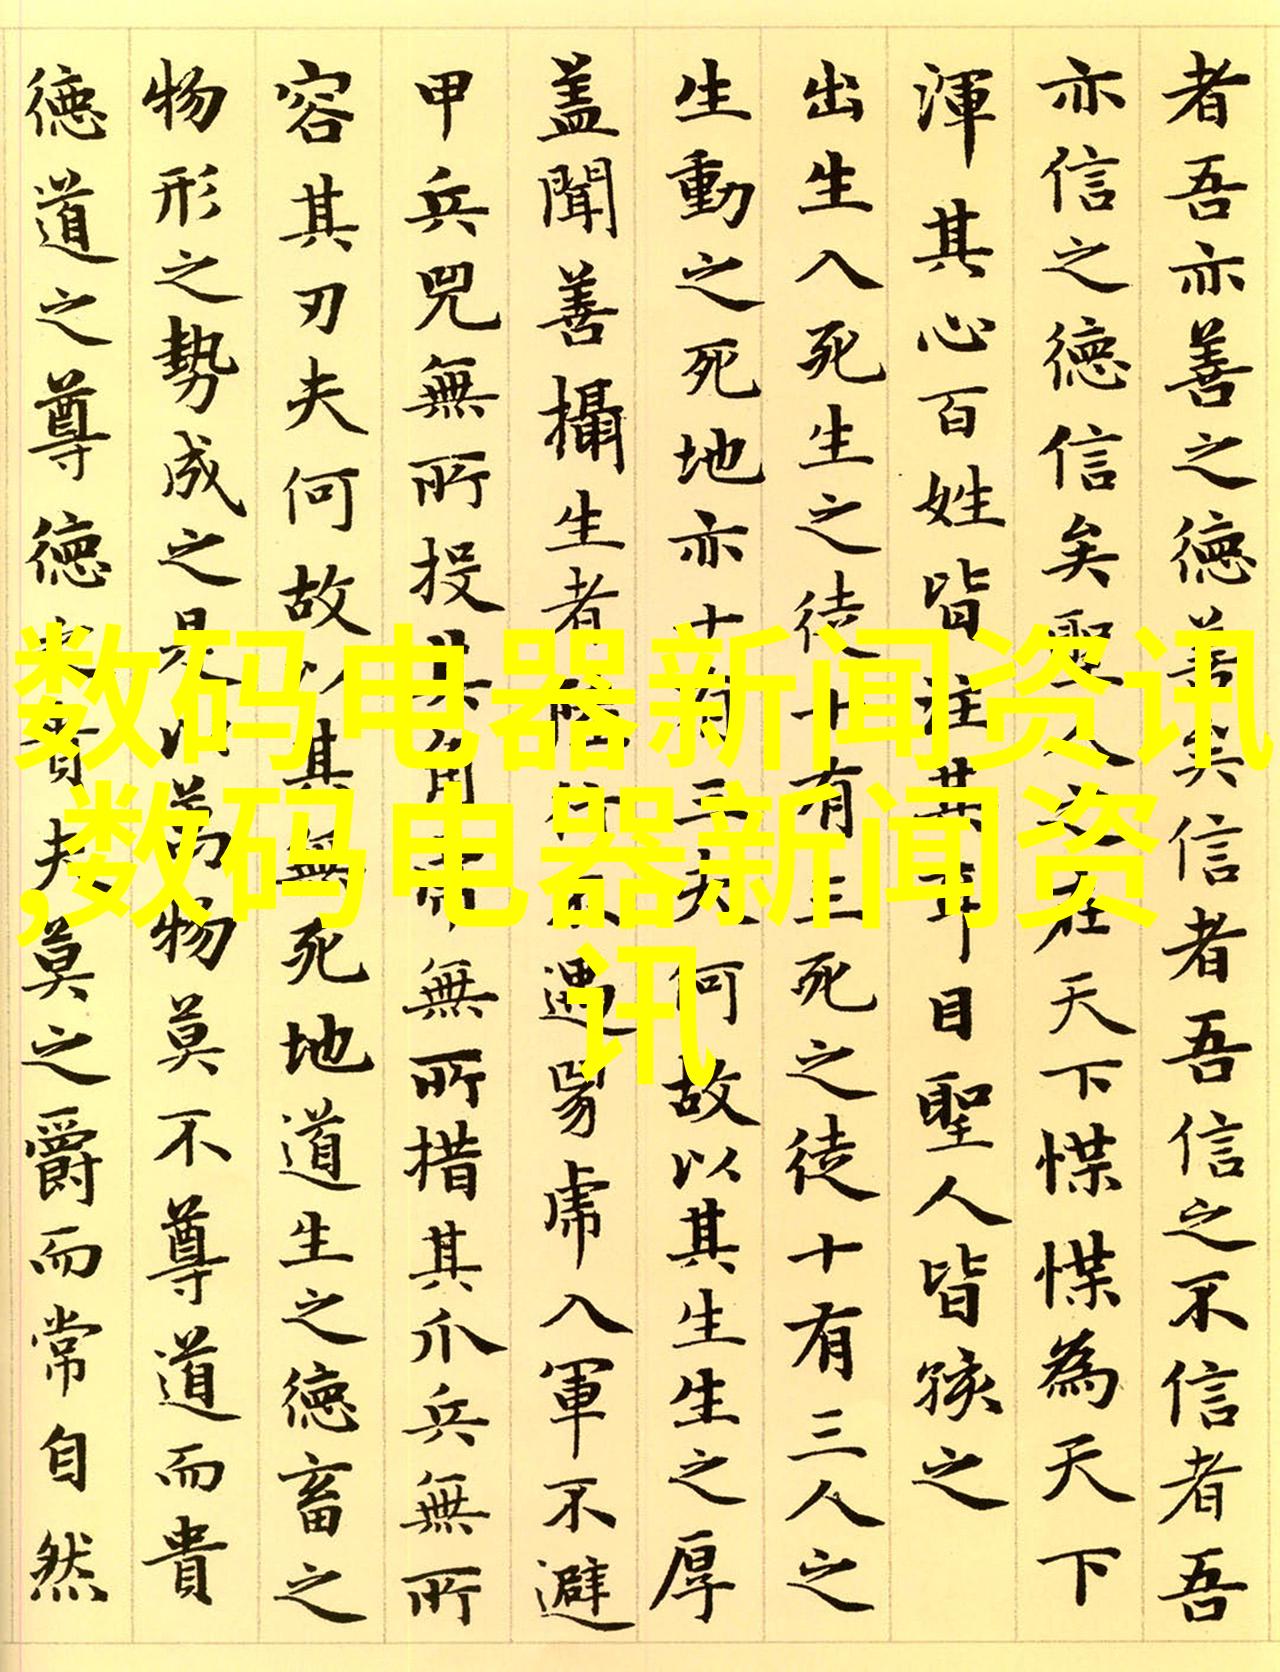 者吾亦善之德善矣信者吾信之不信者吾
亦信之德信矣聖人之在天下惵惵為天下
渾其心百姓皆注其耳目聖人皆孩之
出生入死生之徒十有三死之徒十有三人之
生動之死地亦十有三夫何故以其生生之厚
蓋聞善攝生者陸行不遇兕虎入軍不避
甲兵兕無所投其角虎無所措其爪兵無所
容其刃夫何故以其無死地道生之德畜之
物形之勢成之是以萬物莫不尊道而貴
德道之尊德之貴夫莫之爵而常自然
数码电器新闻资讯
,数码电器新闻资
讯